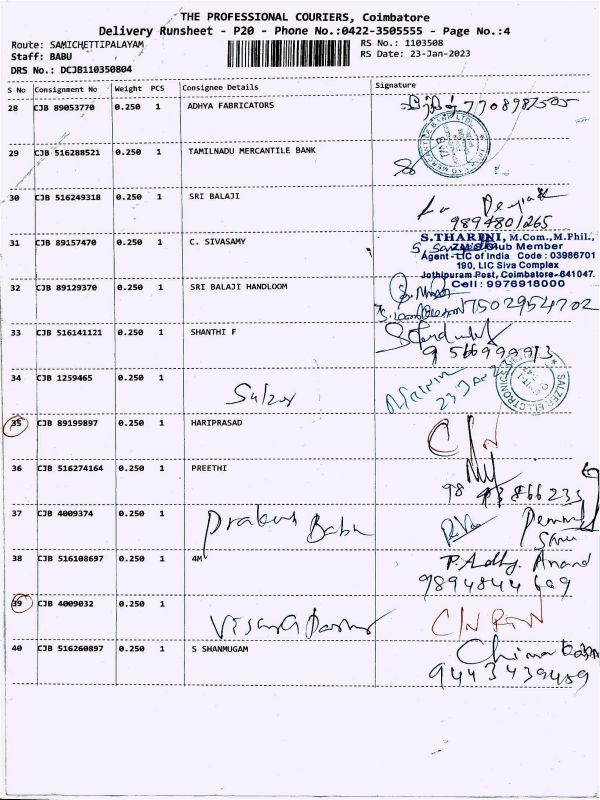 THE PROFESSIONAL COURIERS, Coimbatore
Delivery Runsheet - P20 - Phone No.:0422-3505555 - Page No.:4
Route: SAMICHETTIPALAYAM
RS No.: 1103508
Staff: BABU
RS Date: 23-Jan-2023
DRS No.: DCJB110350804
S No Consignment No Weight PCS Consignee Details Signature
28 CJB 89053770 0.250 1 ADHYA FABRICATORS
29 CJB 516288521 0.250 1 TAMILNADU MERCANTILE BANK
30 CJB 516249318 0.250 1 SRI BALAJI
9894801265
31 CJB 89157470 0.250 1 C. SIVASAMY
S.THARINI, M.Com.,M.Phil.,
Club Member
Agent - LIC of India Code : 03986701
190, LIC Siva Complex
Jothipuram Post, Coimbatore-641047.
Cell : 9976918000
32 CJB 89129370 0.250 1 SRI BALAJI HANDLOOM
7502954702
33 CJB 516141121 0.250 1 SHANTHI F
34 CJB 1259465 0.250 1
35 CJB 89199897 0.250 1 HARIPRASAD
C/N
36 CJB 516274164 0.250 1 PREETHI
37 CJB 4009374 0.250 1 Prakash Babu
38 CJB 516108697 0.250 1 4M
Anand
9894844609
39 CJB 4009032 0.250 1
C/N RTN
40 CJB 516260897 0.250 1 S SHANMUGAM
9443439489